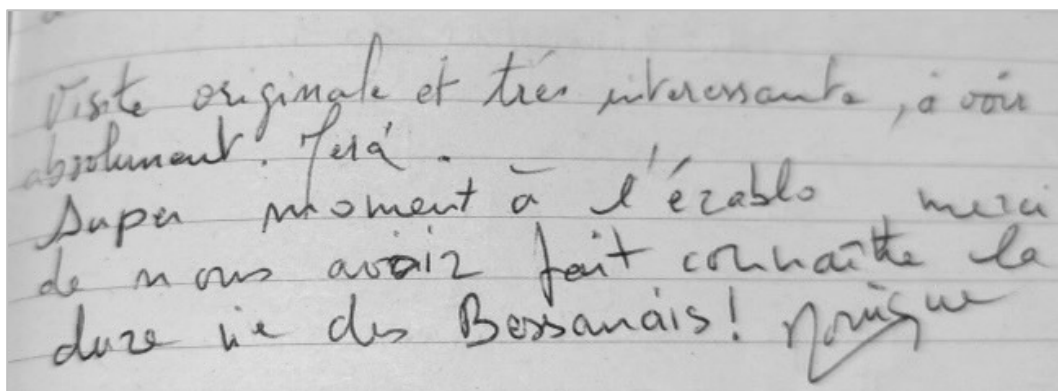 Visite originale et très interessante, à voir
absolument.
Super moment à l'érablo, merci
de nous avoir fait connaître la
dure vie des Bessanais! Monique